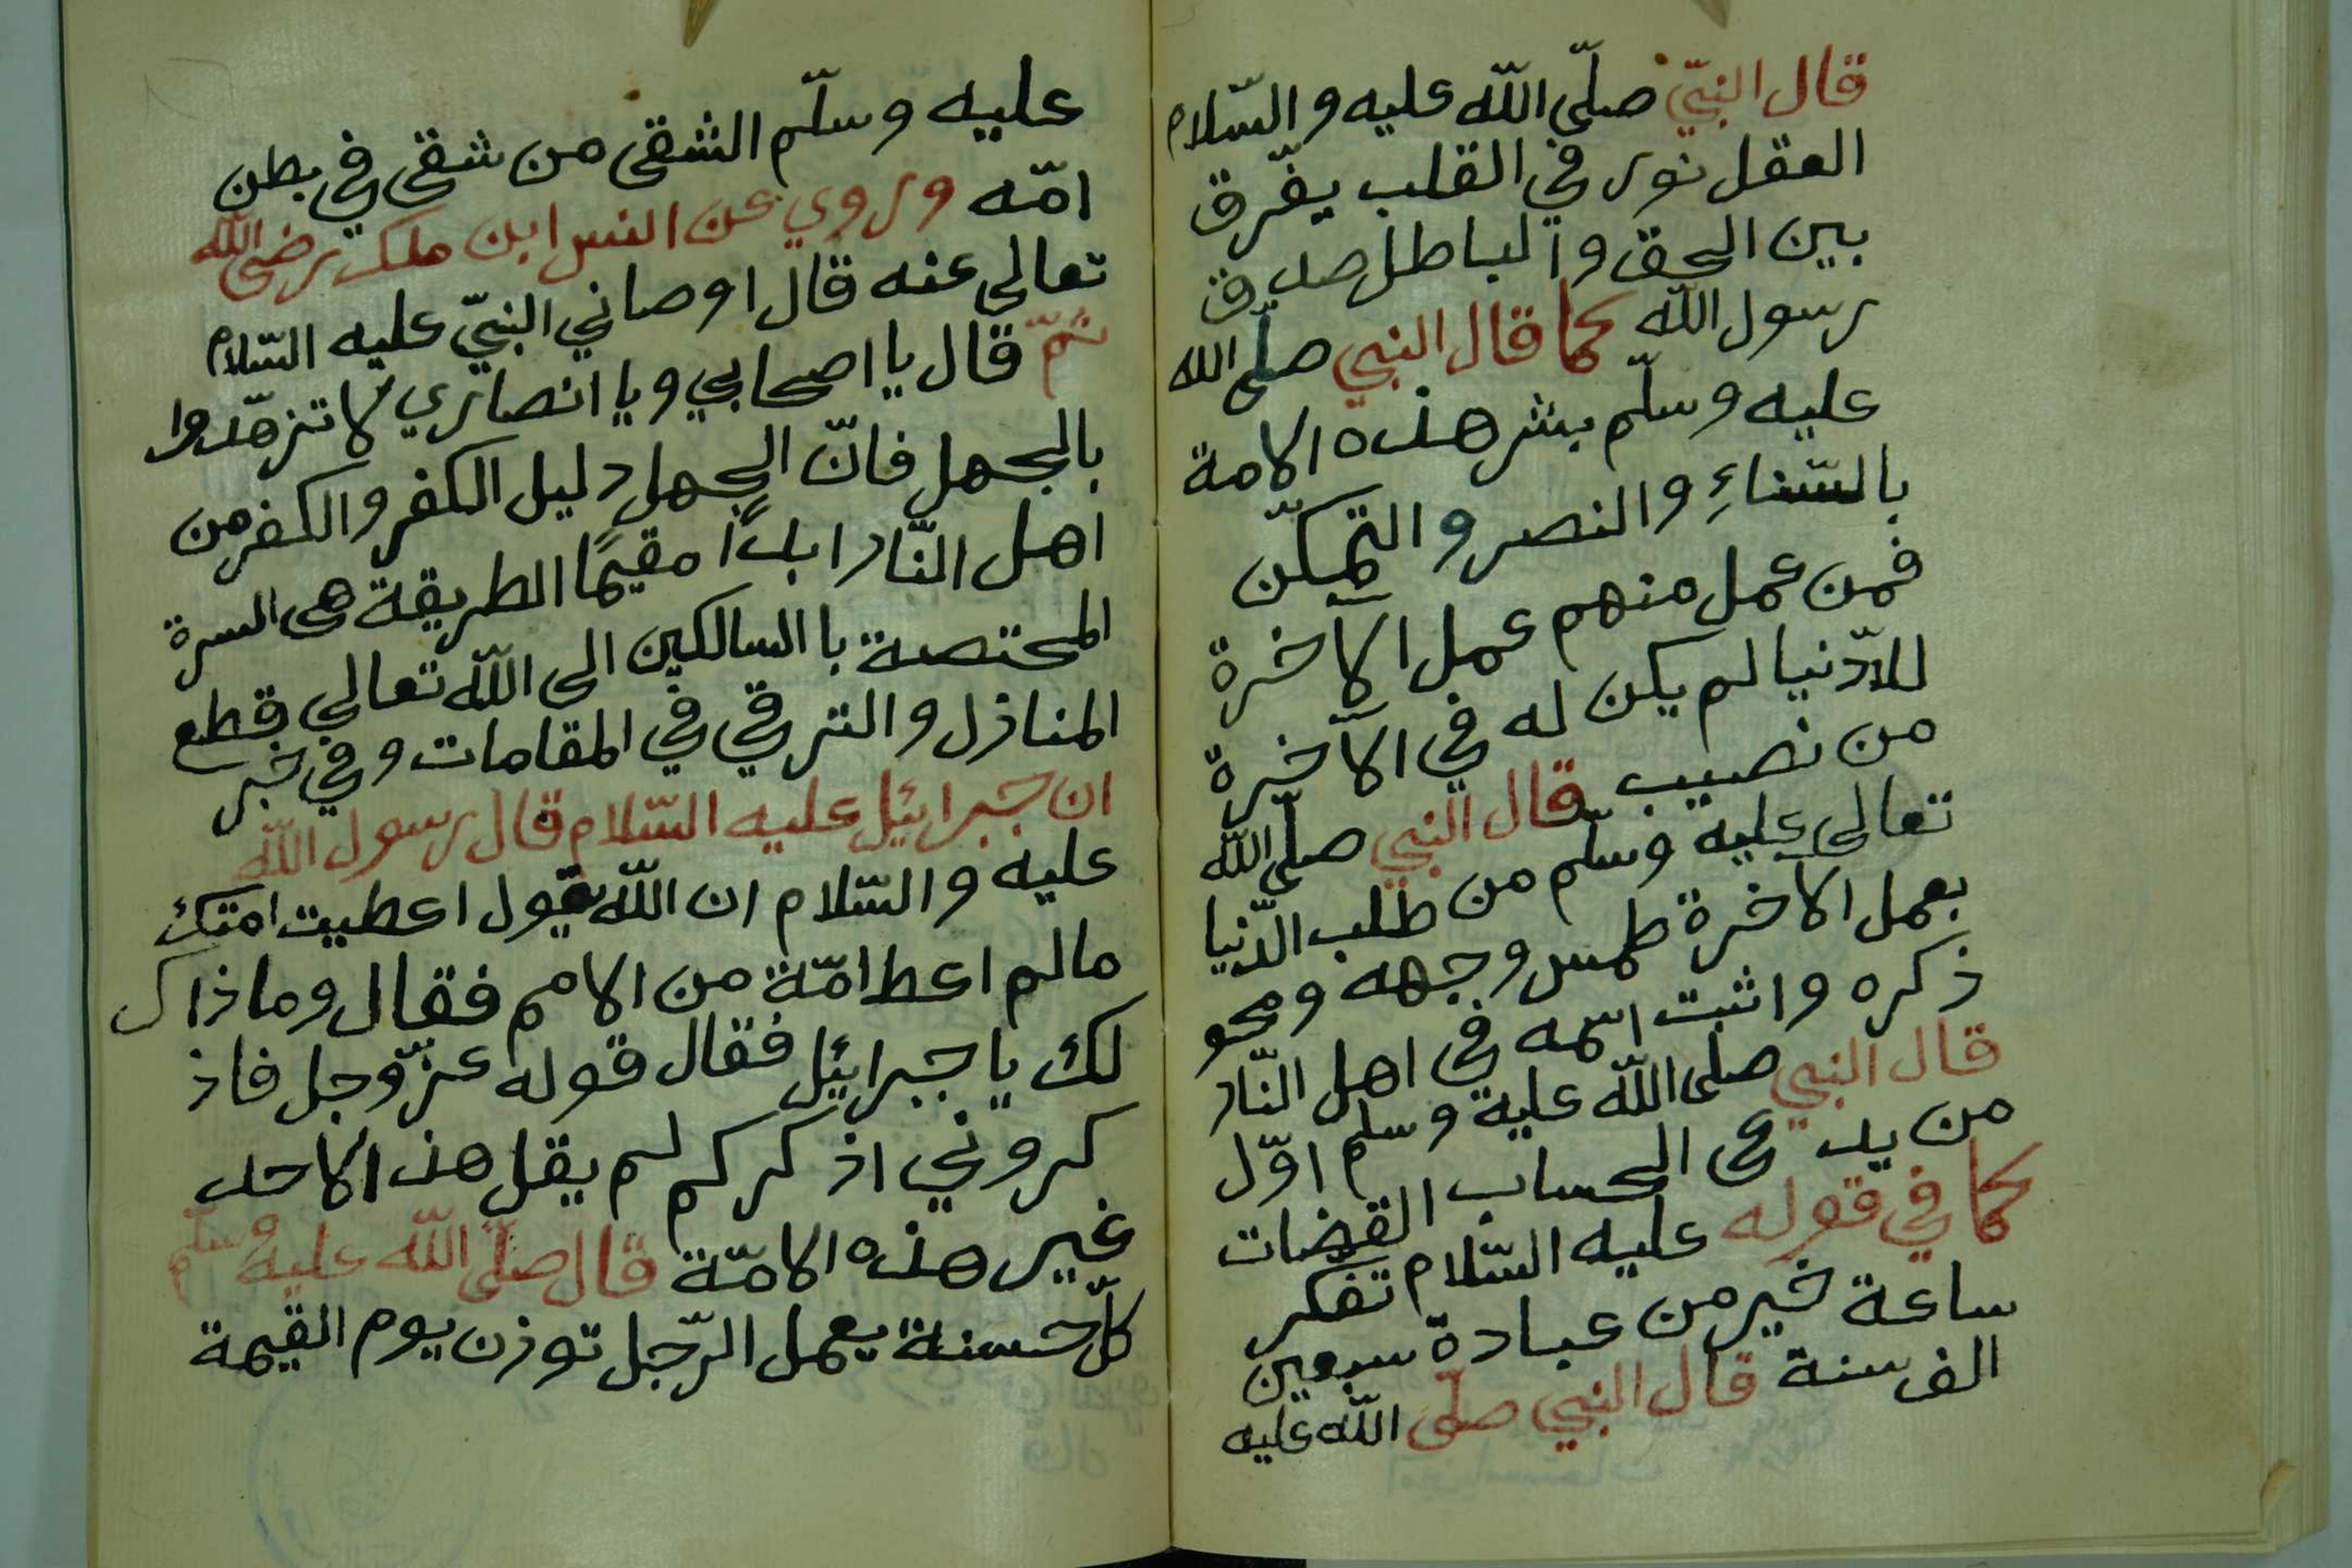 قال النبيّ صلّى اللّه عليه و السّلام
العقل نور في القلب يفّرق
بين الحق و الباطل صدق
رسول اللّه كما قال النبي صلّى اللّه
عليه وسلّم بشر هذه الامة
بالسّناءِ والنصر و التمكّن
فمن عمل منهم عمل الآخرة
للدّنيا لم يكن له في الآخرة
من نصيب قال النبي صلّى اللّه
تعالى عليه وسلّم من طلب الدّنيا
بعمل الاخرة طمس وجهه ومحو
ذكره واثبت اسمه في اهل النّار
قال النبي صلى اللّه عليه وسلم اوّل
من يدعى الحساب القضات
كما في قوله عليه السّلام تفكر
ساعة خير من عبادة سبعين
الف سنة قال النبي صلّى اللّه عليه
عليه وسلّم الشقى من شقى في بطن
امّه وروي عن انس ابن ملك رضى اللّه
تعالى عنه قال اوصاني النبيّ عليه السّلام
ثمّ قال يا اصحابي ويا انصاري لا تزهّدوا
بالجهل فانّ الجهل دليل الكفر والكفر من
اهل النّار ابداً مقيمًا الطريقة هى السرة
المختصة با السالكين الى اللّه تعالى قطع
المنازل و الترقي في المقامات وفي خبر
ان جبرائيل عليه السّلام قال رسول اللّه
عليه و السّلام ان اللّه يقول اعطيت امتك
مالم اعط امّة من الامم فقال وما ذاك
لك يا جبرائيل فقال قوله عزّوجل فاذ
كروني اذكركم لم يقل هذا لاحد
غير هذه الامّة قال صلّى اللّه عليه وسلّم
كلّ حسنة يعمل الرّجل توزن يوم القيمة